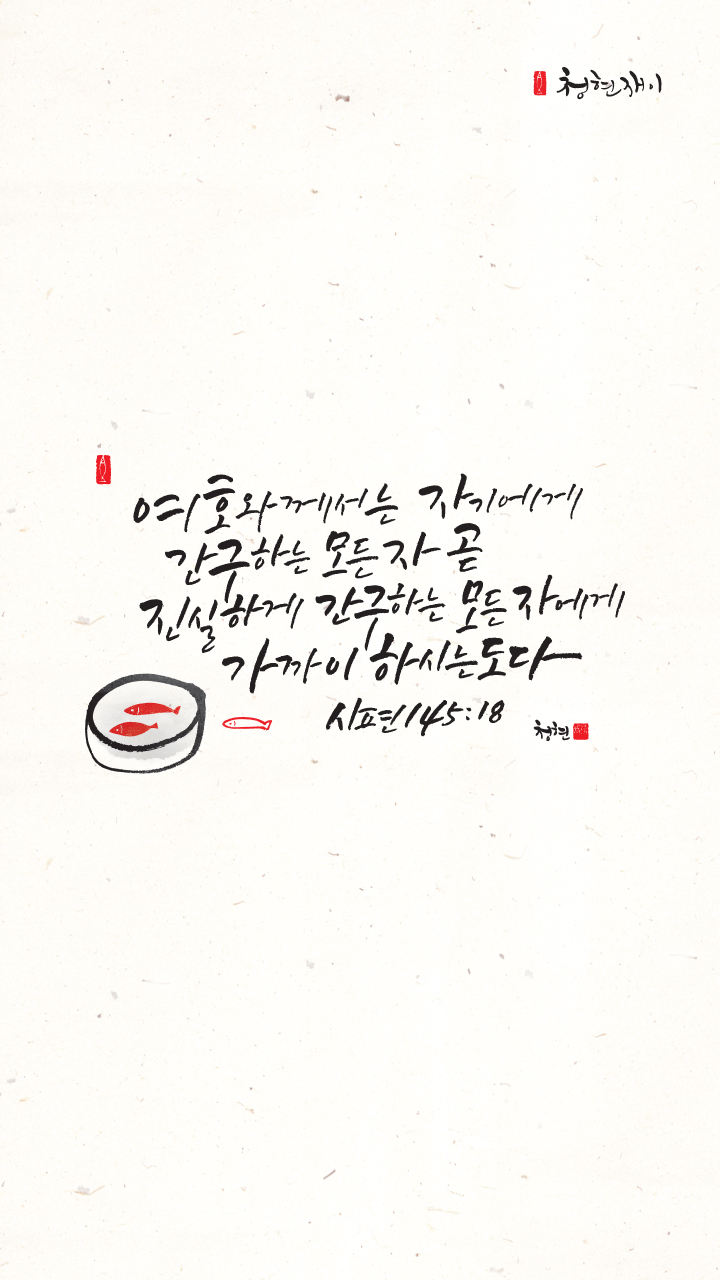 청현재이
여호와께서는 자기에게
간구하는 모든 자 곧
진실하게 간구하는 모든 자에게
가까이 하시는도다
시편 145:18
청현